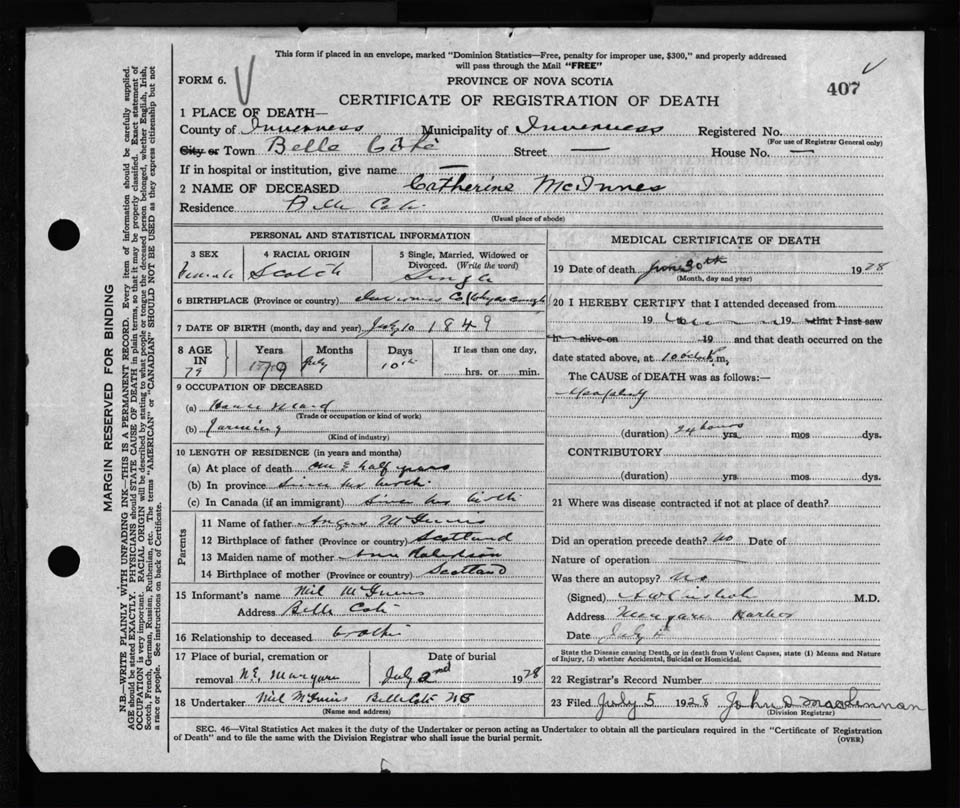 This form if placed in an envelope, marked "Dominion Statistics—Free, penalty for improper use, $300," and properly addressed
will pass through the Mail "FREE"
FORM 6.
PROVINCE OF NOVA SCOTIA
407
CERTIFICATE OF REGISTRATION OF DEATH
1 PLACE OF DEATH—
County of Inverness Municipality of Inverness Registered No.
(For use of Registrar General only)
City or Town Belle Côte Street — House No. —
If in hospital or institution, give name —
2 NAME OF DECEASED Catherine McInnes
Residence Belle Cote
(Usual place of abode)
PERSONAL AND STATISTICAL INFORMATION
3 SEX
4 RACIAL ORIGIN
5 Single, Married, Widowed or
Divorced. (Write the word)
Female Scotch Single
6 BIRTHPLACE (Province or country) Inverness Co
7 DATE OF BIRTH (month, day and year) July 10 1849
8 AGE
IN
Years Months Days If less than one day,
79 July 10th hrs. or min.
9 OCCUPATION OF DECEASED
(a) House Maid
(Trade or occupation or kind of work)
(b) Farming
(Kind of industry)
10 LENGTH OF RESIDENCE (in years and months)
(a) At place of death one & half years
(b) In province Since her birth
(c) In Canada (if an immigrant) Since her birth
Parents
11 Name of father Angus McInnis
12 Birthplace of father (Province or country) Scotland
13 Maiden name of mother Ann
14 Birthplace of mother (Province or country) Scotland
15 Informant's name Neil McInnis
Address Belle Cote
16 Relationship to deceased brother
17 Place of burial, cremation or Date of burial
removal N.E. Margaree July 2nd 1928
18 Undertaker Neil McInnis Belle Cote NS
(Name and address)
MEDICAL CERTIFICATE OF DEATH
19 Date of death June 30th 1928
(Month, day and year)
20 I HEREBY CERTIFY that I attended deceased from
19 19 that I last saw
h alive on 19 and that death occurred on the
date stated above, at 10 o'clock m,
The CAUSE of DEATH was as follows:—
(duration) 24 hours yrs. mos dys.
CONTRIBUTORY
(duration) yrs. mos dys.
21 Where was disease contracted if not at place of death?
Did an operation precede death? No Date of
Nature of operation
Was there an autopsy? No
(Signed) M.D.
Address Margaree Harbor
Date July
State the Disease causing Death, or in death from Violent Causes, state (1) Means and Nature
of Injury, (2) whether Accidental, Suicidal or Homicidal.
22 Registrar's Record Number
23 Filed July 5 1928 John D MacLennan
(Division Registrar)
SEC. 46—Vital Statistics Act makes it the duty of the Undertaker or person acting as Undertaker to obtain all the particulars required in the "Certificate of Registration
of Death" and to file the same with the Division Registrar who shall issue the burial permit.
(OVER)
MARGIN RESERVED FOR BINDING
N.B.—WRITE PLAINLY WITH UNFADING INK—THIS IS A PERMANENT RECORD. Every item of information should be carefully supplied.
AGE should be stated EXACTLY. PHYSICIANS should STATE CAUSE OF DEATH in plain terms, so that it may be properly classified. Exact statement of
OCCUPATION is very important. RACIAL ORIGIN will be described by stating to what people or tongue the deceased person belonged, whether English, Irish,
Scotch, French, German, Russian, Ruthenian, etc. The terms "AMERICAN" or "CANADIAN" SHOULD NOT BE USED as they express citizenship but not
a race or people. See instructions on back of Certificate.